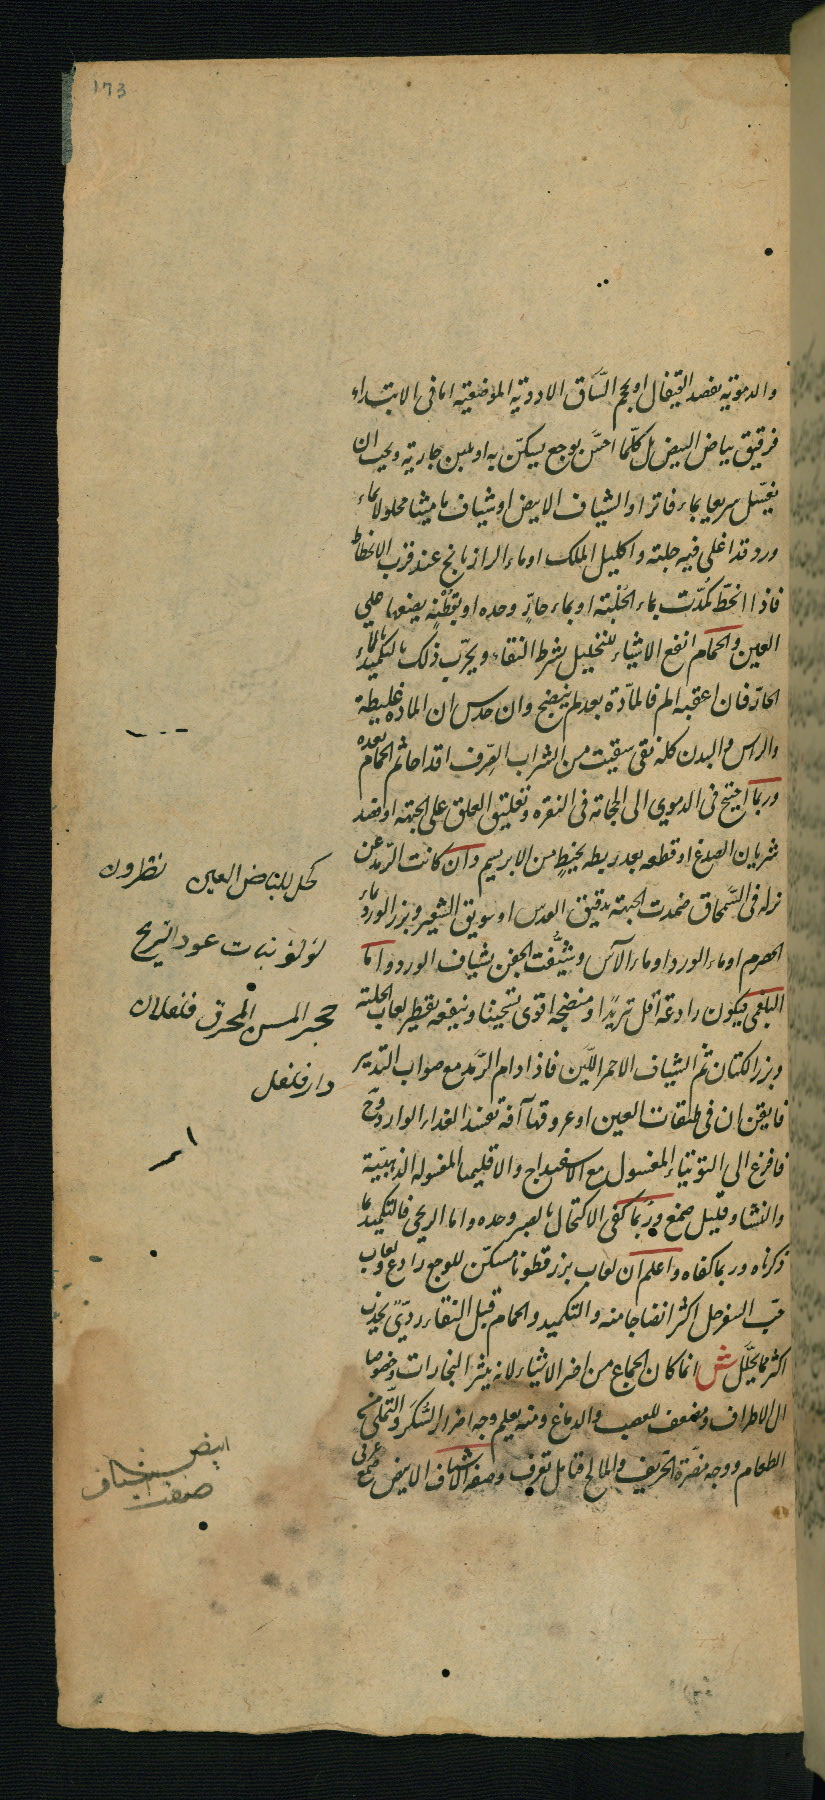 173
والدموية بفصد القيفال او بحجم الساق الادوية الموضعية اما فى الابتداء
فرقيق بياض البيض بل كلما احسّ بوجع يسكن به او بلبن جارية ويجب ان
يغسل سريعا بماء فاتر او الشياف الابيض او شياف ماميثا محلولا بماء
ورد قد اغلى فيه حلبة واكليل الملك او ماء الرازيانج عند قرب الانحطاط
فاذا انحطّ كُمّدت بماء الحلبة او بماء حارّ وحده او بقطنة يضعها على
العين والحمام انفع الاشياء للتحليل بشرط النقاء ويجرّب ذلك بالتكميد بالماء
الحارّ فان اعقبه الم فالمادّة بعد لم ينضج وان حدس ان المادة غليظة
والراس والبدن كله نقى سقيت من الشراب الصرف اقداحا ثم الحمام بعده
وربما احتيج فى الدموى الى الحجامة فى النقره وتعليق العلق على الجبهة او فصد
شريان الصدغ او قطعه بعد ربطه بخيطٍ من الابريسم وان كانت الرمد عن
نزلة فى السمحاق ضمدت الجبهة بدقيق العدس او سويق الشعير وبزر الورد وماء
الحصرم او ماء الورد او ماء الآس وشيّفت الجفن بشياف الورد واما
البلغمى فيكون رادعه اقل تبريدًا ومنضجه اقوى تسخينا وينفعه تقطير لعاب الحلبة
وبزر الكتان ثم الشياف الاحمر اللّين فاذا دام الرمد مع صواب التدبير
فايقن ان فى طبقات العين او عروقها آفة تفسد الغذاء الوارد وح
فافزع الى التوتياء المغسول مع الاسفيداج والاقليميا المغسولة الذهبيّة
والنشا وقليل صمغ وربما كفى الاكتحال بالصبر وحده واما الريحى فالتكميد بما
ذكرناه وربما كفاه واعلم ان لعاب بزر قطونا مسكّن للوجع رادع ولعاب
حبّ السفرجل اكثر انضاجا منه والتكميد والحمام قبل النقاء ردىّ يجذب
اكثر مما يحلّل ش انما كان الجماع من اضر الاشياء لانه يثير البخارات وخصوصا
الى الاطراف ومضعف للعصب والدماغ ومنه يعلم وجه اضرار السكر والتملى من
الطعام ووجه مضرّة الحريف والمالح قتامل تعرف وصفة الاشياف الابيض صمغ عربى
كحل للبياض العين نطرون
لؤلؤ نبات عود الريح
حجر المسن المحرق فلفلان
دارفلفل
ابيض
صفت شياف